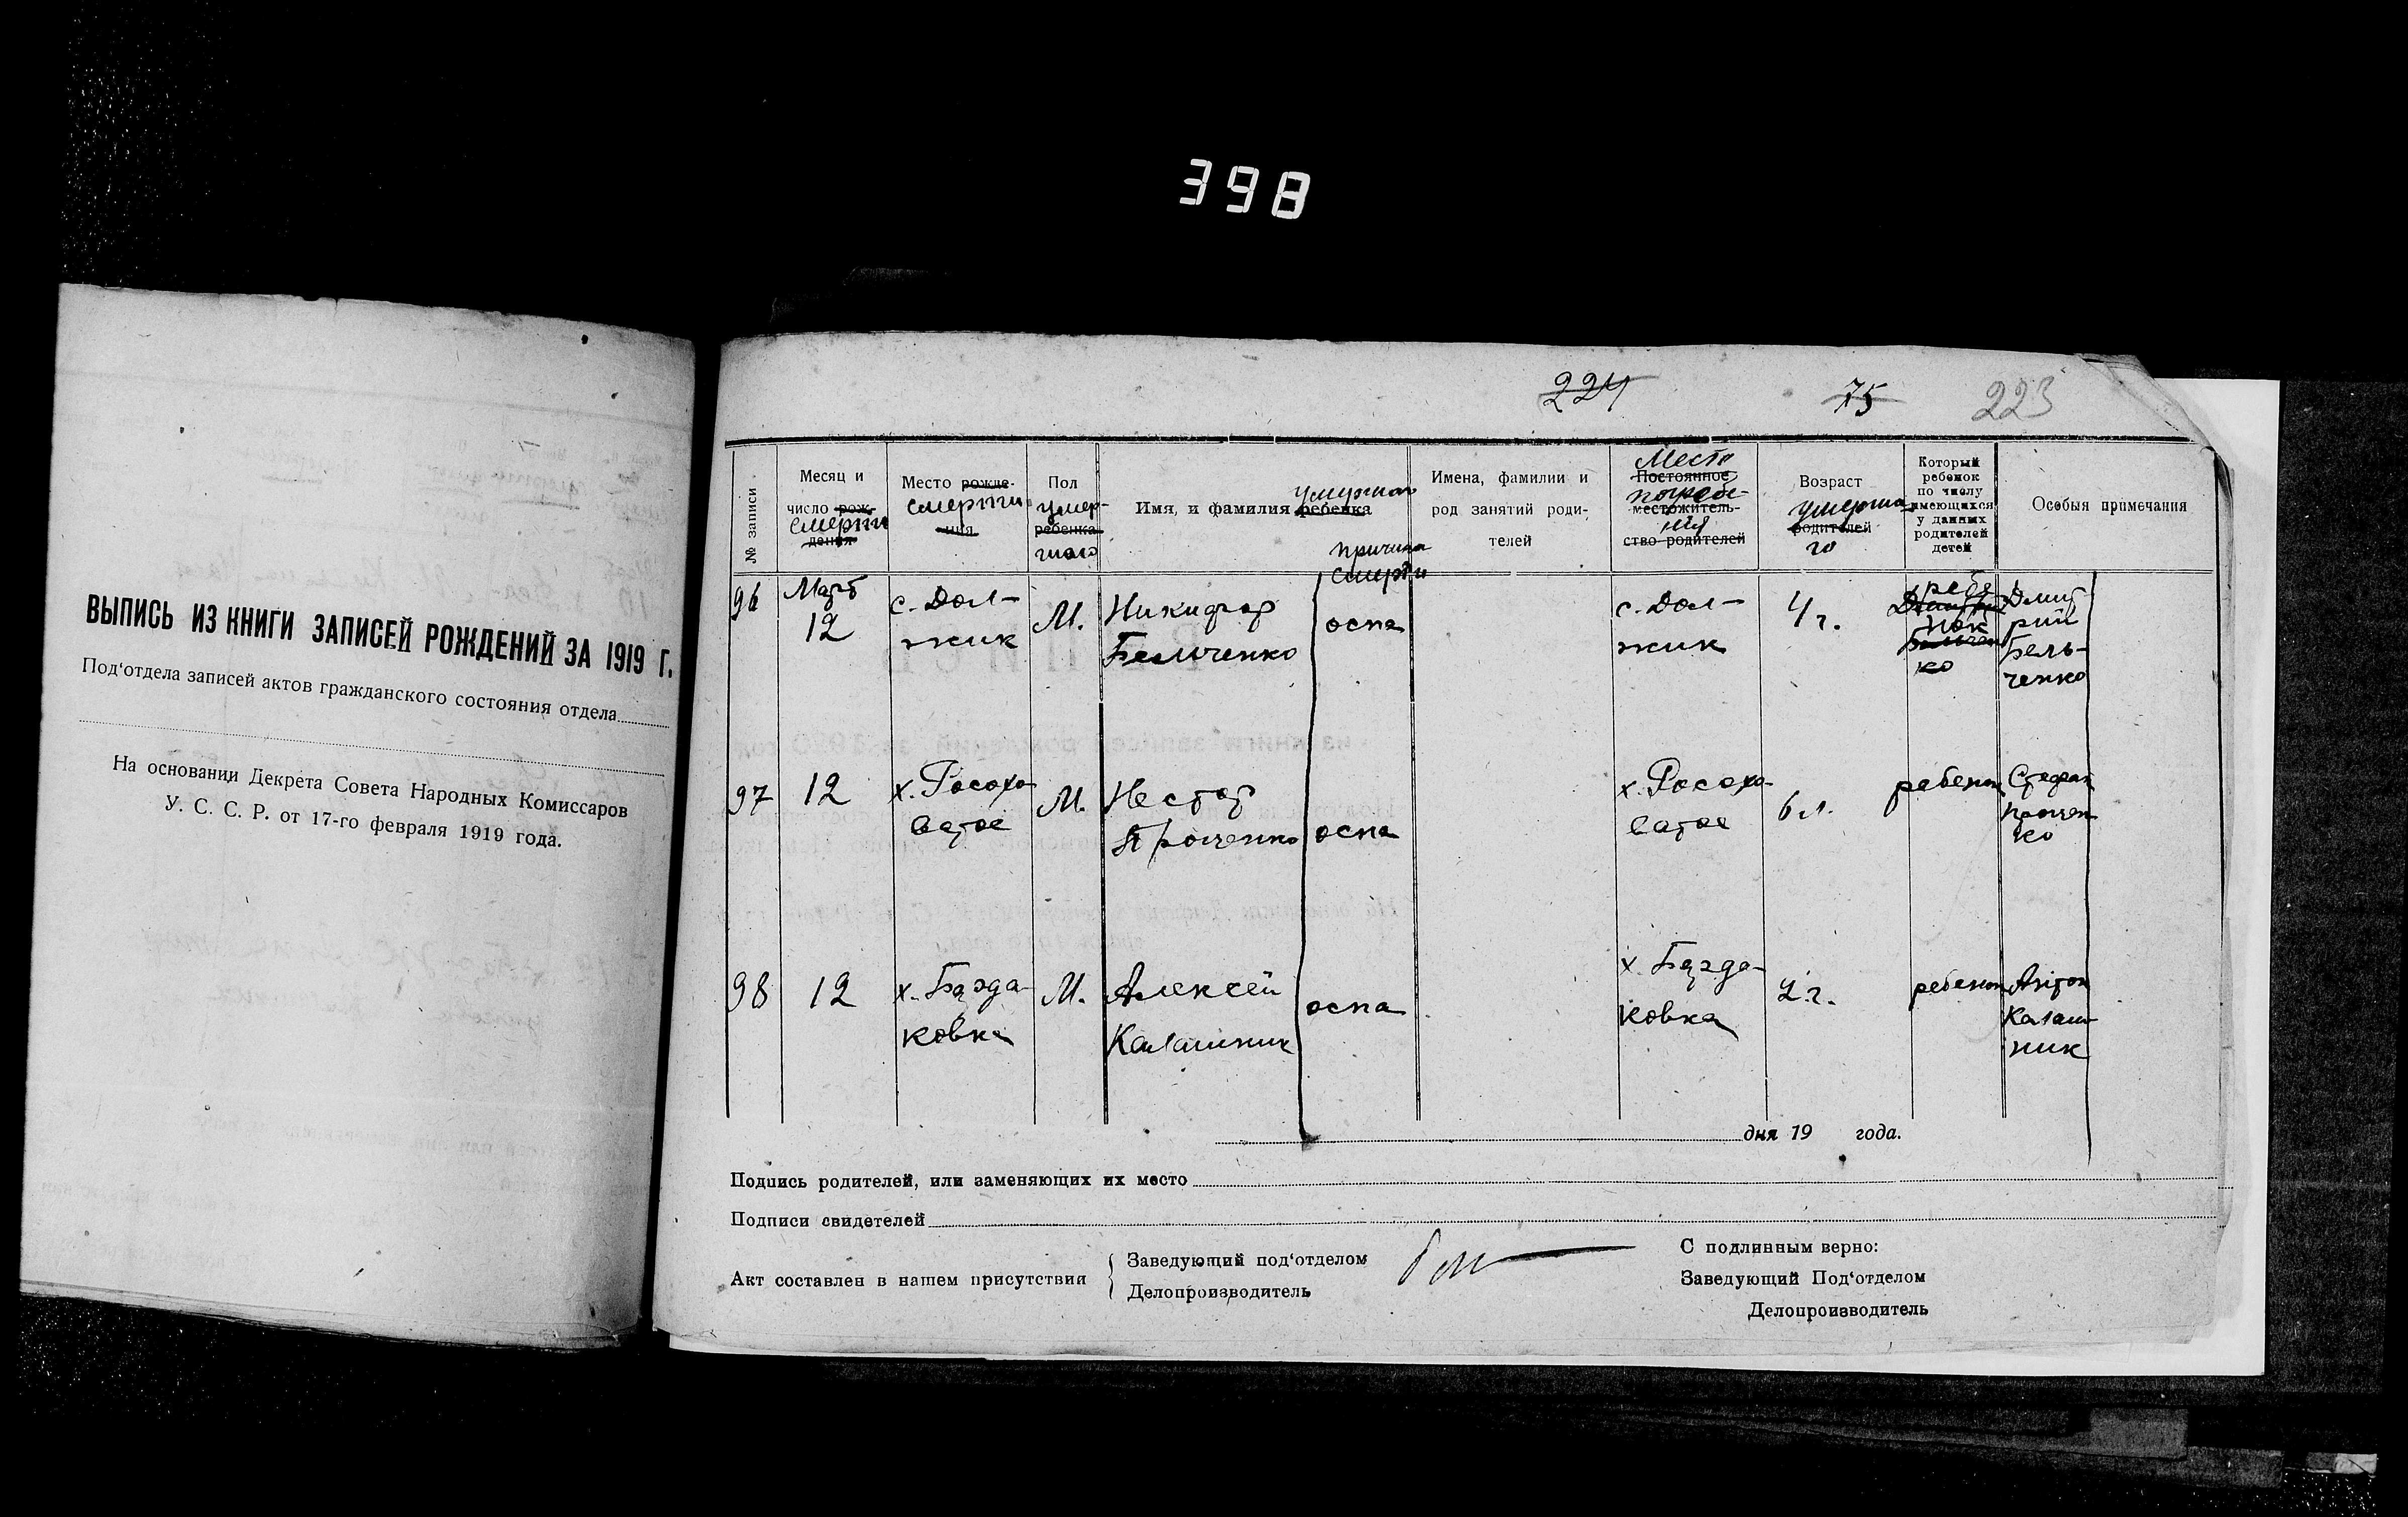 398
ВЫПИСЬ ИЗ КНИГИ ЗАПИСЕЙ РОЖДЕНИЙ ЗА 1919 Г.
Под‘отдела записей актов гражданского состояния отдела
На основании Декрета Совета Народных Комиссаров
У. С. С. Р. от 17-го февраля 1919 года.
224 75 223
№ записи
Месяц и
число рож-
смерти
дения
Место рожде-
смерти
ния
Пол
умер-
ребенка
шаго
Имя, и фамилия ребенка
умершаго
причина
смерти
Имена, фамилии и
род занятий роди-
телей
Место
Постоянное
погребе-
местожитель-
ния
ство родителей
Возраст
умерша-
родителей
го
Который
ребенок
по числу
имеющихся
у данных
родителей
детей
Особыя примечания
96
Март
12
с. Дол-
жик
М.
Никифор
Бельченко
оспа
с. Дол-
жик
4 г.
ребе
нок
ко
Дмит
рий
Бель-
ченко
97
12
х. Росохо-
ватое
М.
Нестор
Проценко
оспа
х. Росохо-
ватое
6 л.
ребенок
Стефан
Процен
ко
98
12
х. Базда-
ковка
М.
Алексей
Калашник
оспа
х. Базда-
ковка
2 г.
ребенок
Антон
Калаш-
ник
дня 19 года.
Подпись родителей, или заменяющих их место
Подписи свидетелей
Акт составлен в нашем присутствии
Заведующий под‘отделом
Делопроизводитель
С подлинным верно:
Заведующий Под‘отделом
Делопроизводитель